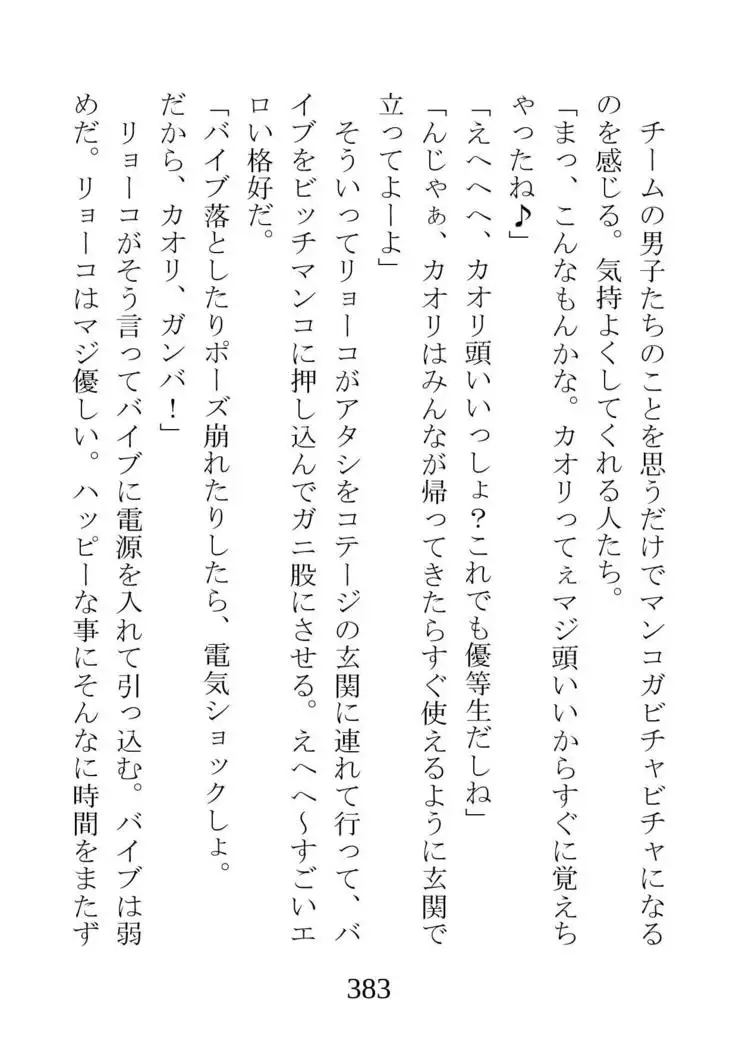 チームの男子たちのことを思うだけでマンコガビチャビチャになる
のを感じる。気持よくしてくれる人たち。
「まっ、こんなもんかな。カオリってぇマジ頭いいからすぐに覚えち
ゃったね♪」
「えへへへ、カオリ頭いいっしょ？これでも優等生だしね」
「んじゃぁ、カオリはみんなが帰ってきたらすぐ使えるように玄関で
立ってよーよ」
そういってリョーコがアタシをコテージの玄関に連れて行って、バ
イブをビッチマンコに押し込んでガニ股にさせる。えへへ～すごいエ
ロい格好だ。
「バイブ落としたりポーズ崩れたりしたら、電気ショックしょ。
だから、カオリ、ガンバ！」
リョーコがそう言ってバイブに電源を入れて引っ込む。バイブは弱
めだ。リョーコはマジ優しい。ハッピーな事にそんなに時間をまたず
383